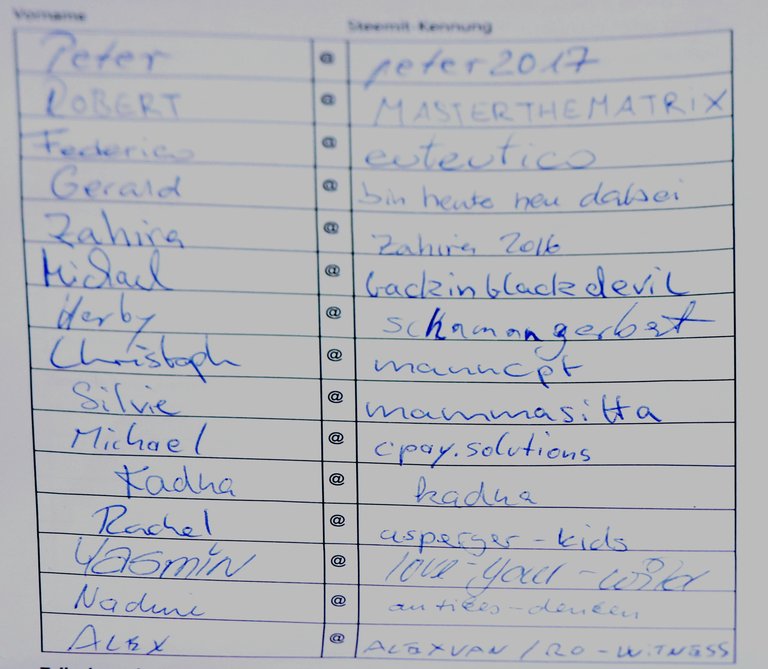 Vorname Steemit-Kennung
Peter @ peter2017
ROBERT @ MASTERTHEMATRIX
Federico @ euteutico
Gerald @ bin heute neu dabei
Zahira @ Zahira 2016
Michael @ backinblackdevil
Herby @ schamangerbert
Christoph @ manncpt
Silvie @ mammasitta
Michael @ cpay.solutions
Kadna @ kadna
Rachel @ asperger-kids
YASMIN @ love-your-
Nadine @ antikes-denken
ALEX @ ALEXVAN / RO-WITNESS